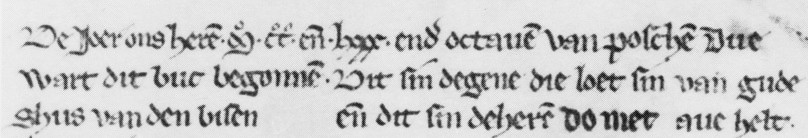 De Joer ons herē · M̊ · cc̊c̊ · eñ · lxxx · end octauē van poschē Due
wart dit buc begonnē · Dit sin degene die loet sin van gude
ghus van den bisen eñ dit sin deherē do met aue helt ·